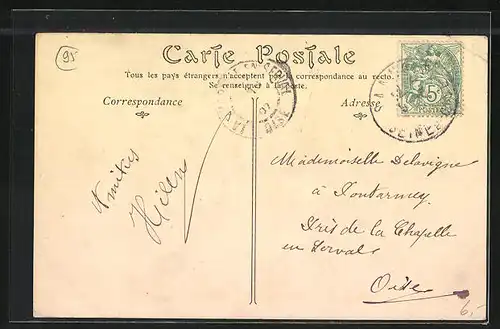 95
Carte Postale
Tous les pays étrangers n'acceptent pas la correspondance au recto.
Se renseigner à la poste.
Correspondance
Adresse
5
OISE
Amitiés
Mademoiselle Delavigne
à Pontarmey
Près de la Chapelle
en Serval
Oise
6,-